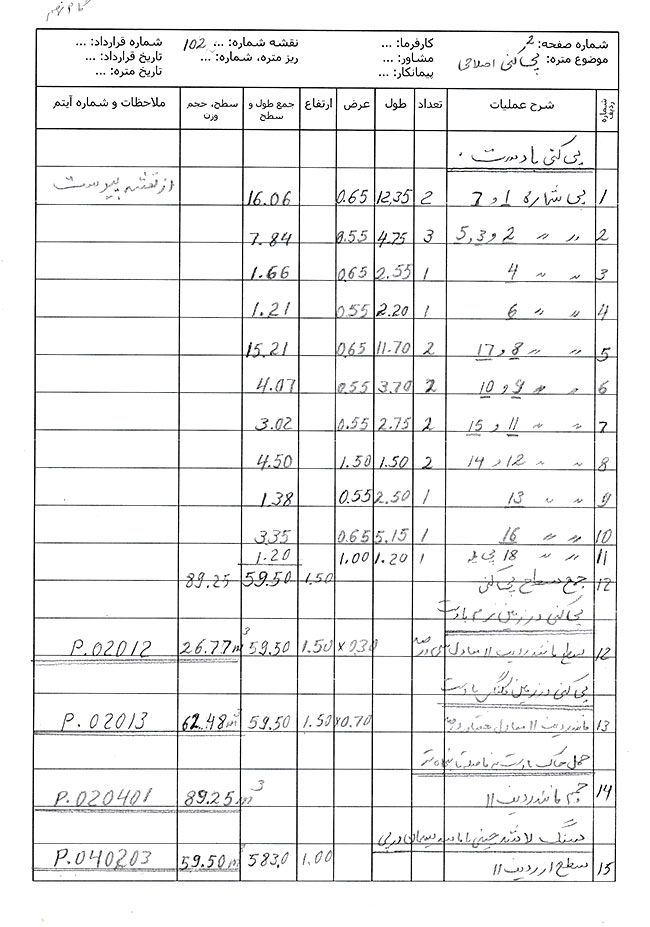 شماره صفحه: 2 کارفرما: ... نقشه شماره: ... 102 شماره قرارداد: ...
موضوع متره: پی کنی اصلاحی مشاور: ... ریز متره، شماره: ... تاریخ قرارداد: ...
پیمانکار: ... تاریخ متره: ...
شماره ردیف شرح عملیات تعداد طول عرض ارتفاع جمع طول و سطح سطح، حجم وزن ملاحظات و شماره آیتم
پی کنی با دست .
1 پی شماره 1 و 7 2 12.35 0.65 16.06 از نقشه پیوست
2 〃 〃 2 و 3 , 5 3 4.75 0.55 7.84
3 〃 〃 4 1 2.55 0.65 1.66
4 〃 〃 6 1 2.20 0.55 1.21
5 〃 〃 8 و 17 2 11.70 0.65 15.21
6 〃 〃 9 و 10 2 3.70 0.55 4.07
7 〃 〃 11 و 15 2 2.75 0.55 3.02
8 〃 〃 12 و 14 2 1.50 1.50 4.50
9 〃 〃 13 1 2.50 0.55 1.38
10 〃 〃 16 1 5.15 0.65 3.35
11 〃 〃 18 پی پله 1 1.20 1.00 1.20
12 جمع سطح پی کنی 1.50 59.50 89.25
پی کنی در زمین نرم با دست
12 سطح مانند ردیف 11 معادل سی درصد 1.50 × 0.30 59.50 26.77 m³ P.02012
پی کنی در زمین کلنگی با دست
13 مانند ردیف 11 معادل هفتاد درصد 1.50 × 0.70 59.50 62.48 m³ P.02013
حمل خاک با دست به فاصله تا پنجاه متر
14 حجم مانند ردیف 11 89.25 m³ P.020401
سنگ لاشه چینی با ماسه سیمان در پی
15 سطح از ردیف 11 1.00 583.0 59.50 m³ P.040203